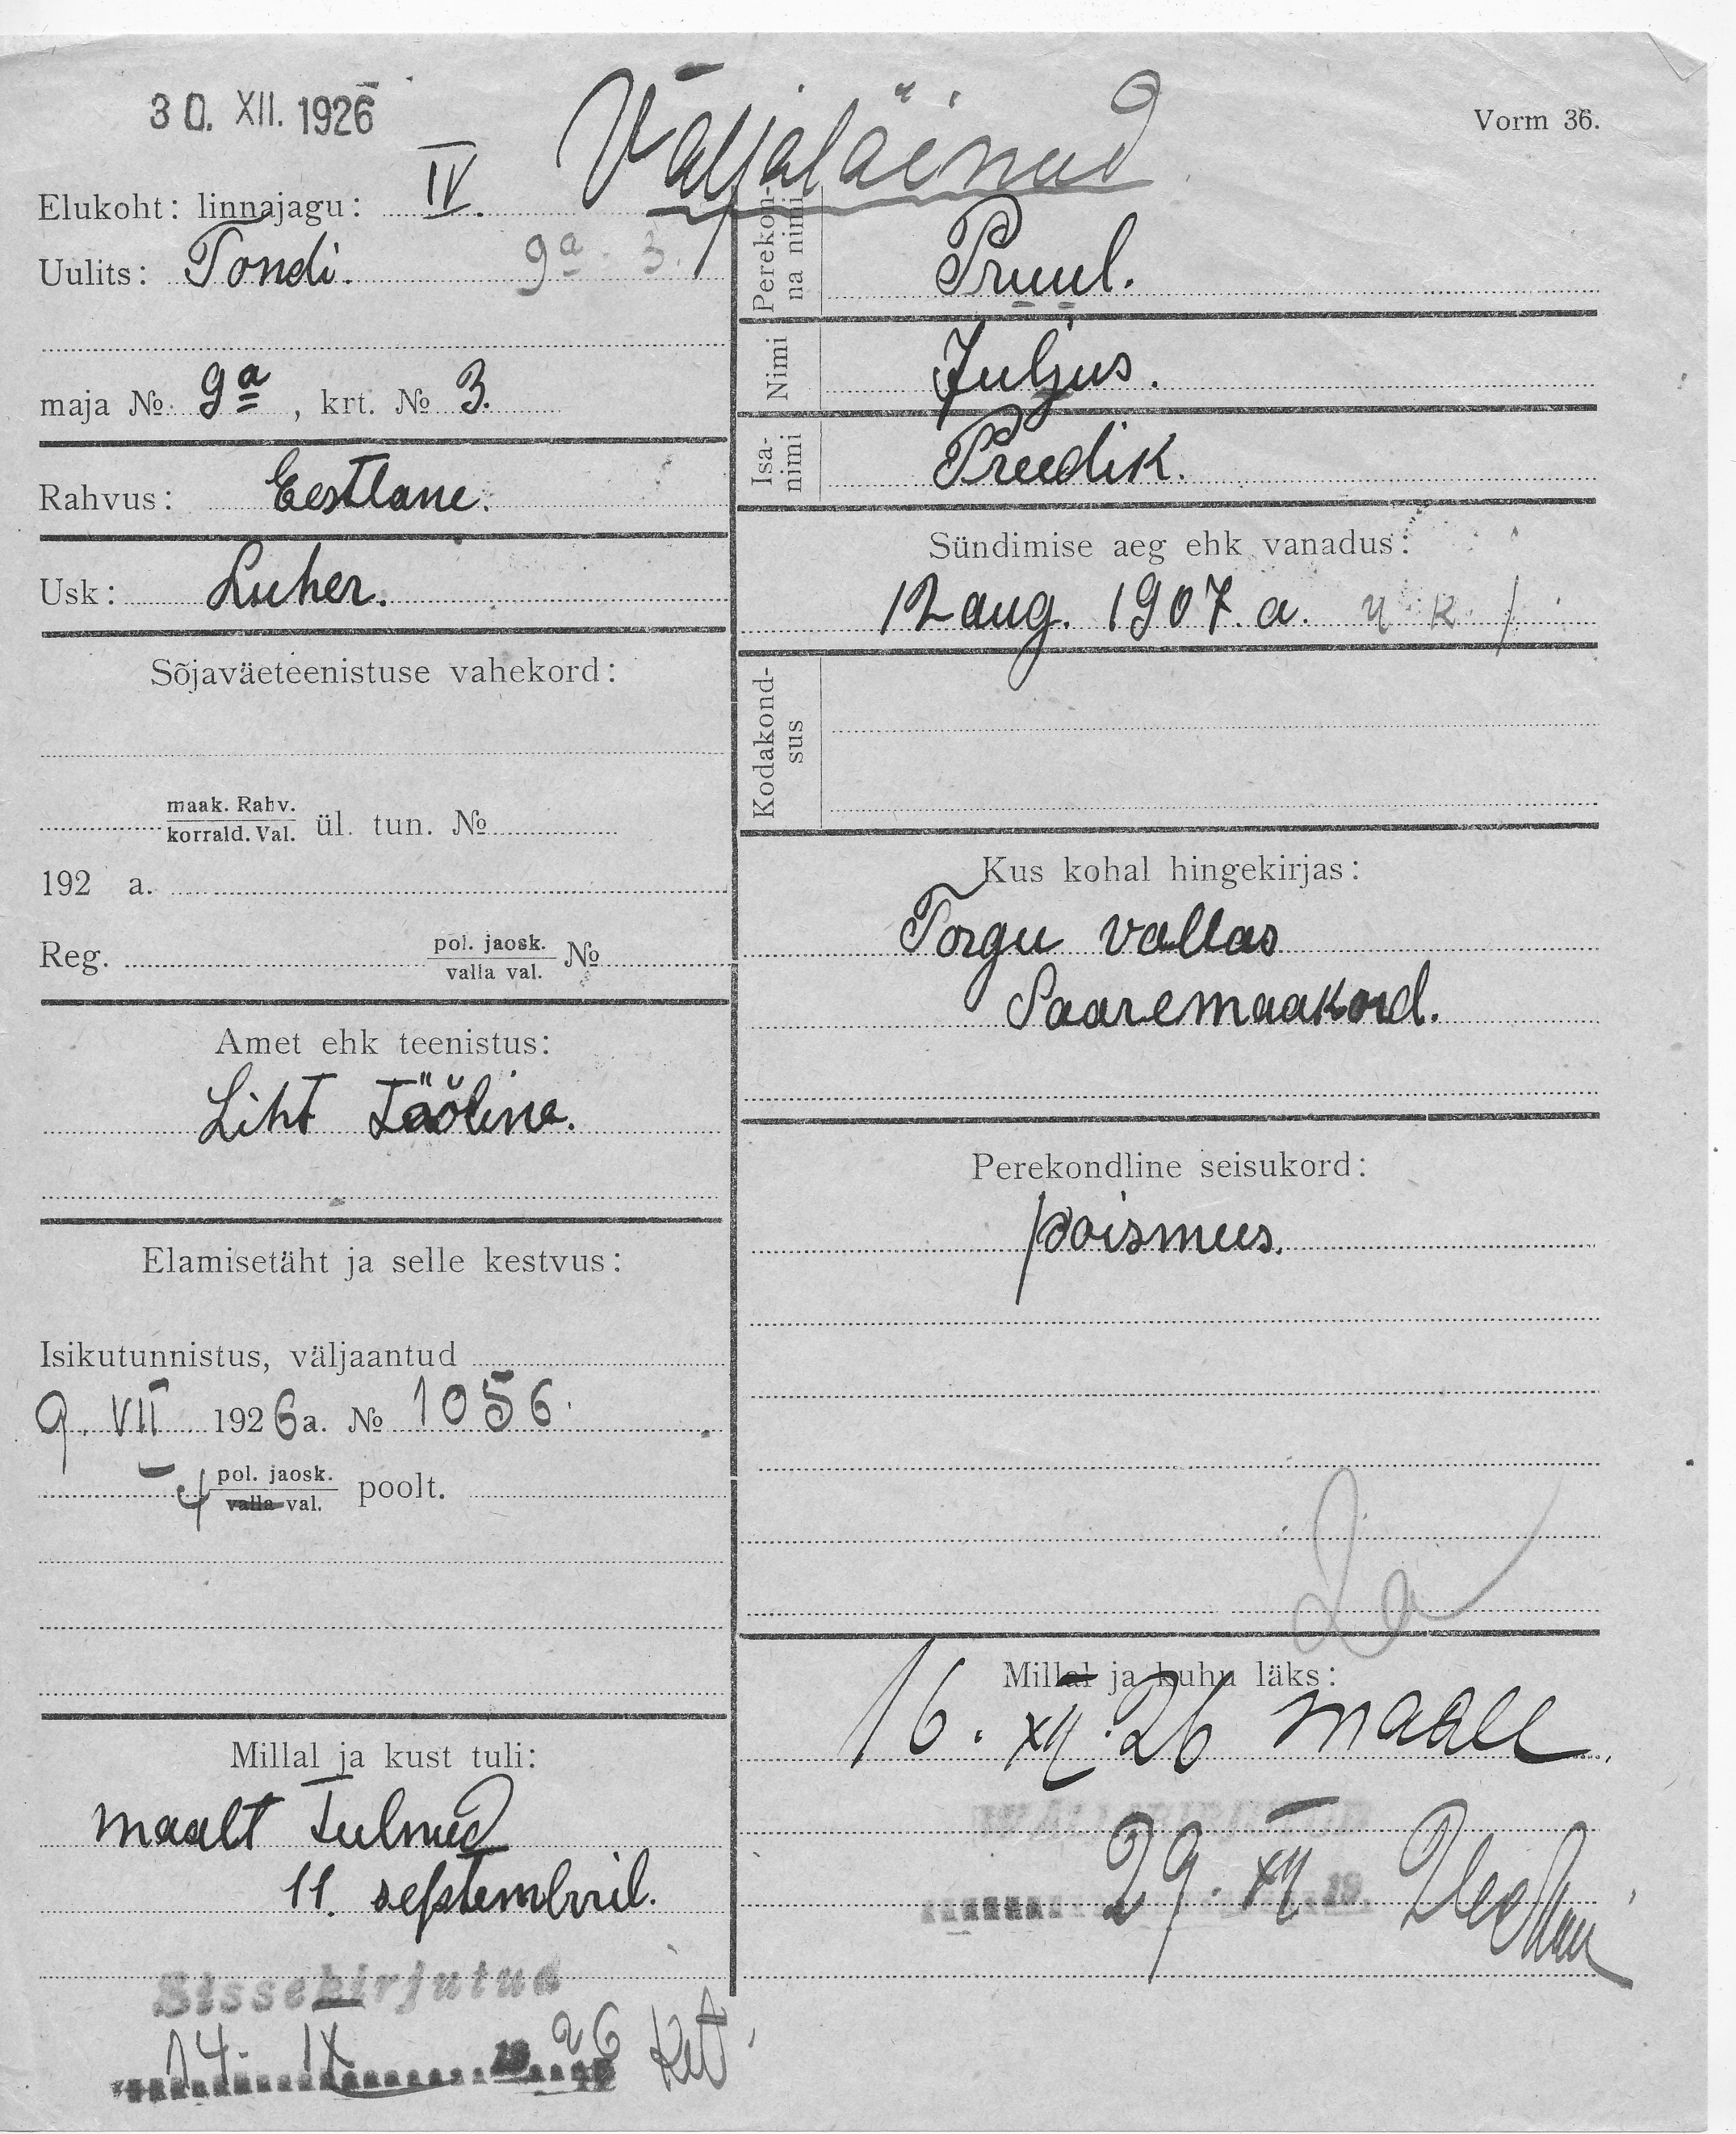 30. XII. 1926
Väljaläinud
Vorm 36.
Elukoht: linnajagu: IV.
Uulits: Tondi. 9a 3.
maja № 9a, krt. № 3.
Rahvus: Eestlane.
Usk: Luher.
Sõjaväeteenistuse vahekord:
maak. Rahv.
korrald. Val. ül. tun. №
192 a.
Reg. pol. jaosk.
valla val. №
Amet ehk teenistus:
Liht Tööline.
Elamisetäht ja selle kestvus:
Isikutunnistus, väljaantud
9. VII 1926 a. № 1056.
4 pol. jaosk.
valla val. poolt.
Millal ja kust tuli:
maalt Tulnud
11. septembril.
Sissekirjutud
14. IX 1926
Perekonna nimi
Pruul.
Nimi
Juljus.
Isanimi
Preedik.
Sündimise aeg ehk vanadus:
12 aug. 1907. a.
Kodakondsus
Kus kohal hingekirjas:
Torgu vallas
Saaremaakord.
Perekondline seisukord:
poismees.
Millal ja kuhu läks:
16. XII. 26 maale
29. XII
19